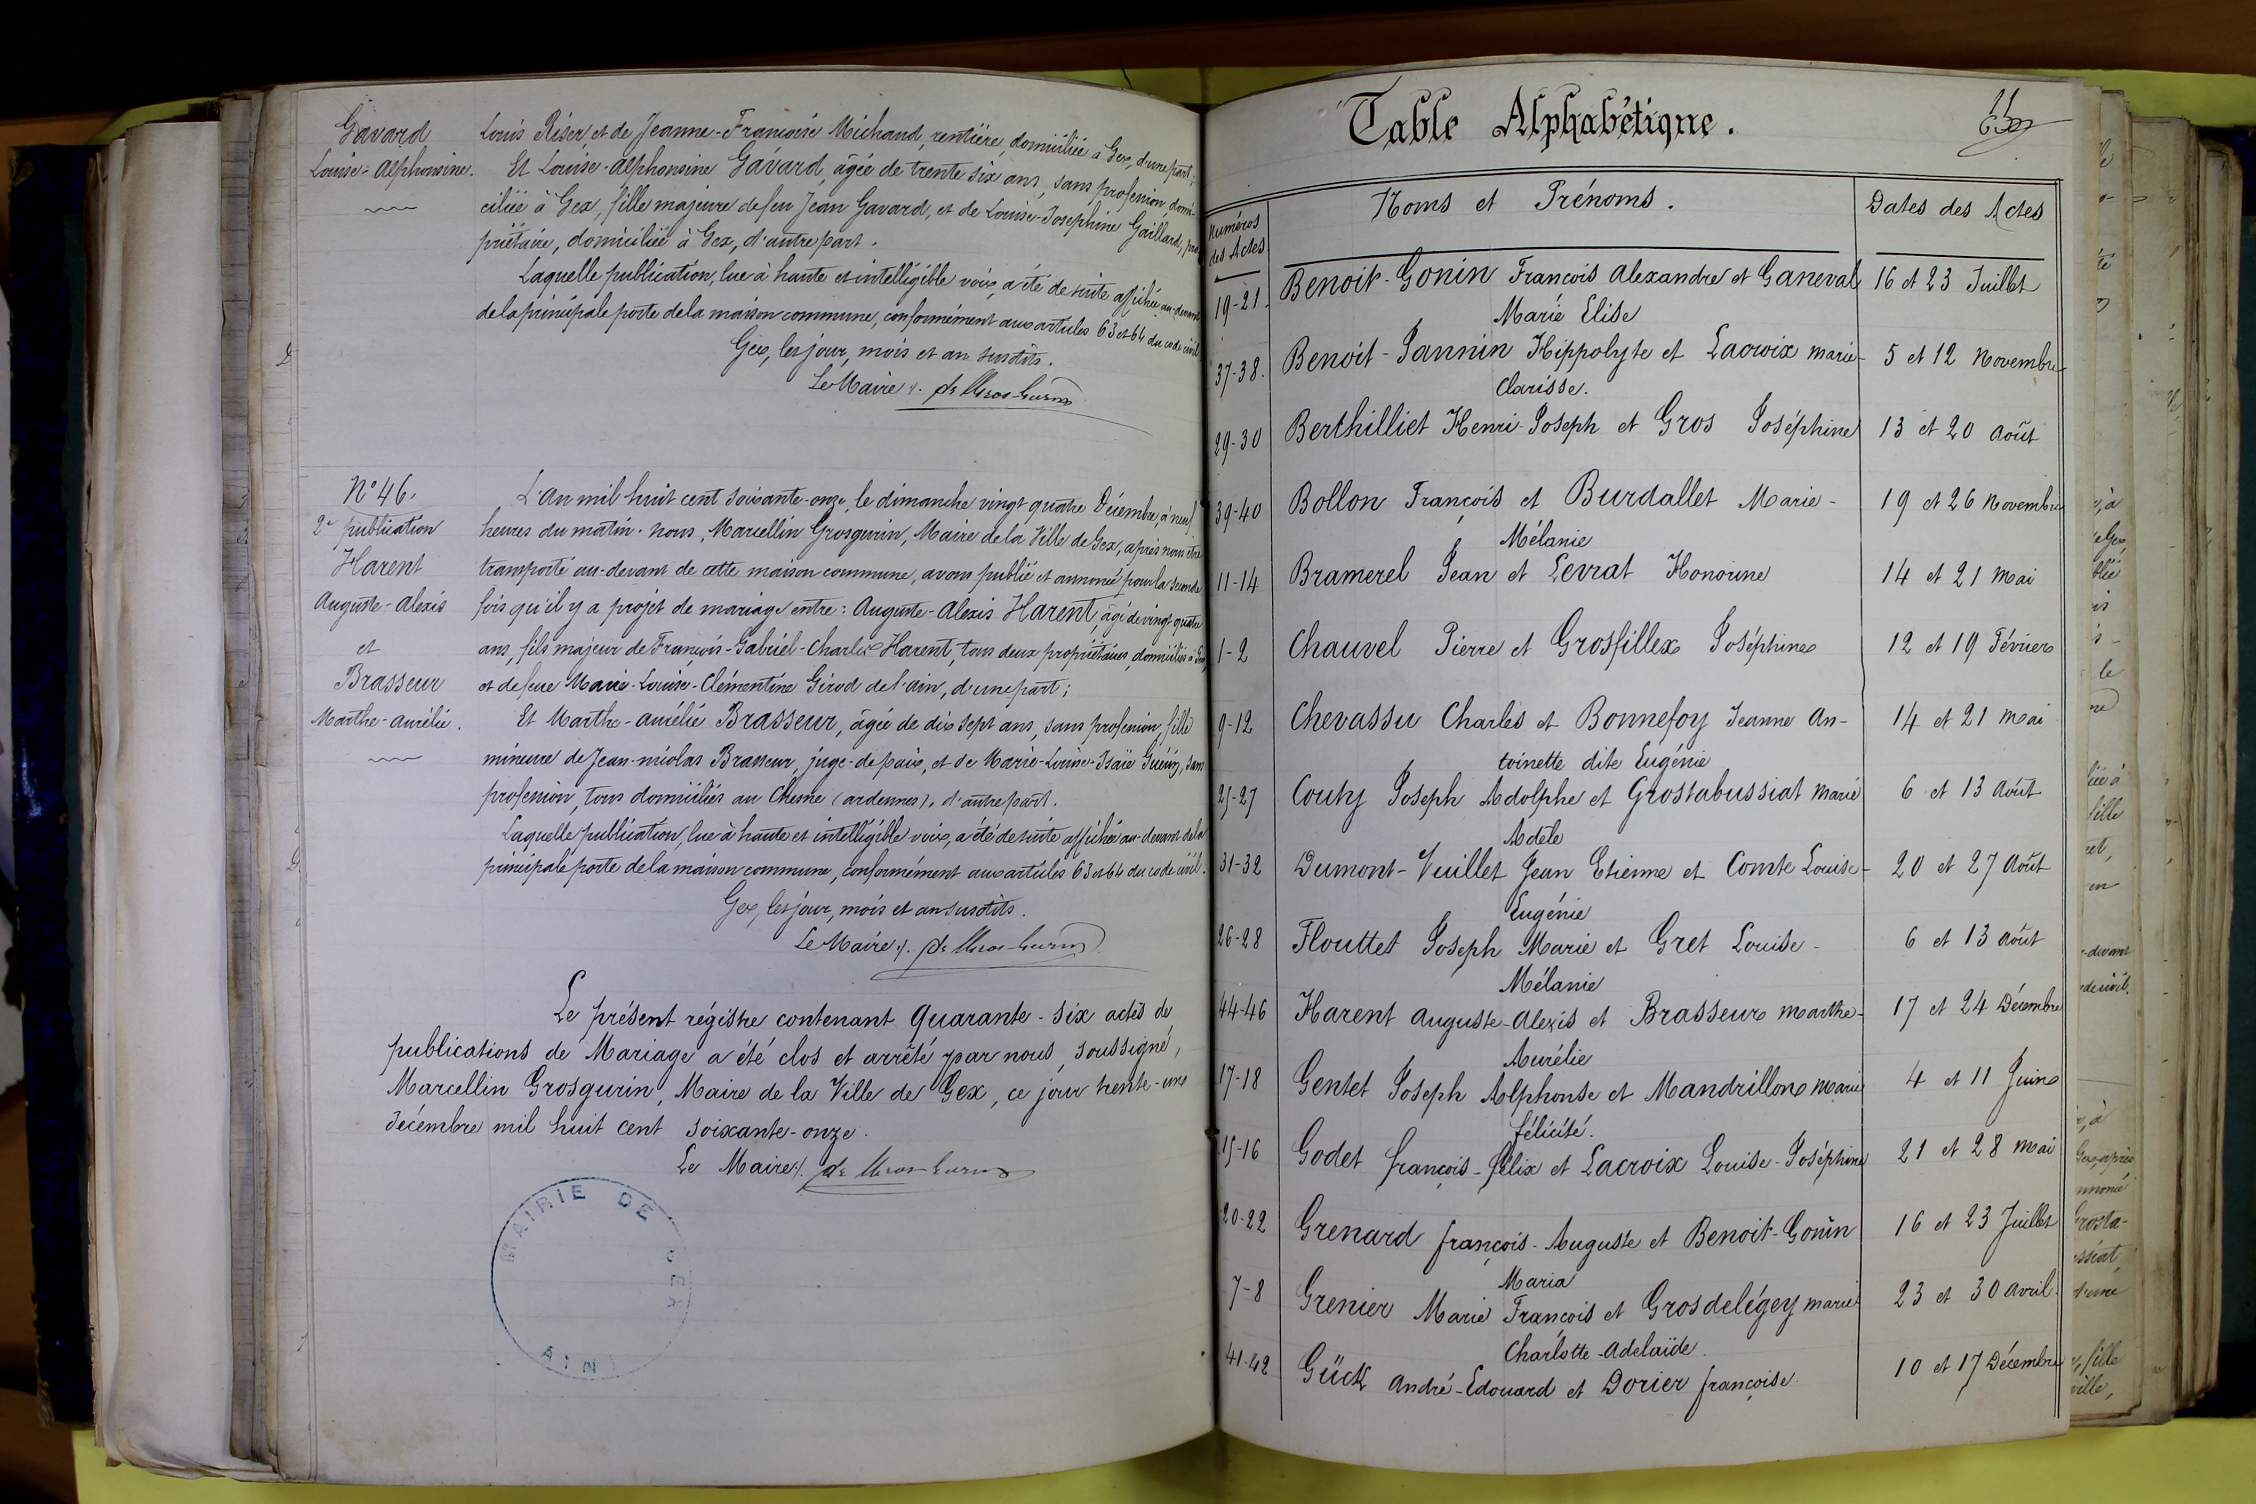 Gavard
Louise-Alphonsine.
Louis Riser, et de Jeanne-Françoise Michaud, rentière, domiciliée à Gex, d'une part;
Et Louise-Alphonsine Gavard, âgée de trente six ans, sans profession, domi-
ciliée à Gex, fille majeure de feu Jean Gavard, et de Louise-Josephine Gaillard, pro
priétaire, domiciliée à Gex, d'autre part.
Laquelle publication, lue à haute et intelligible voix, a été de suite affichée au-devant
de la principale porte de la maison commune, conformément aux articles 63 et 64 du code civil
Gex, les jour, mois et an susdits.
Le Maire
N° 46.
2e publication
Harent
Auguste-Alexis
et
Brasseur
Marthe-Aurélie.
L'An mil huit cent soixante-onze, le dimanche vingt quatre Décembre, à neuf
heures du matin. Nous, Marcellin Grosgurin, Maire de la Ville de Gex, après nous être
transporté au-devant de cette maison commune, avons publié et annoncé pour la seconde
fois qu'il y a projet de mariage entre: Auguste-Alexis Harent, âgé de vingt quatre
ans, fils majeur de François-Gabriel-Charles Harent, tous deux propriétaires, domiciliés à Gex,
et de feue Marie-Louise-Clémentine Girod de l'ain, d'une part;
Et Marthe-Aurélie Brasseur, âgée de dix sept ans, sans profession, fille
mineure de Jean-nicolas Brasseur, juge-de-paix, et de Marie-Louise-Isaïe, sans
profession, tous domiciliés au Chesne (ardennes), d'autre part.
Laquelle publication, lue à haute et intelligible voix, a été de suite affichée au-devant de la
principale porte de la maison commune, conformément aux articles 63 et 64 du code civil.
Gex, les jour, mois et an susdits.
Le Maire
Le présent régistre contenant quarante-six actes de
publications de Mariage a été clos et arrêté par nous, soussigné,
Marcellin Grosgurin, Maire de la Ville de Gex, ce jour trente-un
Décembre mil huit cent soixante-onze.
Le Maire
MAIRIE DE GEX
(AIN)
11
Table Alphabétique.
Numéros des Actes Noms et Prénoms. Dates des Actes
19-21. Benoit-Gonin François Alexandre et Ganeval 16 et 23 Juillet
Marie Elise
37-38. Benoit-Jannin Hippolyte et Lacroix Marie- 5 et 12 Novembre
Clarisse.
29-30 Berthilliet Henri-Joseph et Gros Joséphine 13 et 20 Août
39-40 Bollon François et Burdallet Marie- 19 et 26 Novembre
Mélanie
11-14 Bramerel Jean et Levrat Honorine 14 et 21 Mai
1-2 Chauvel Pierre et Grosfillex Joséphine 12 et 19 Février
9-12 Chevassu Charles et Bonnefoy Jeanne An- 14 et 21 Mai
toinette dite Eugénie
25-27 Couty Joseph Adolphe et Grostabussiat Marie 6 et 13 Août
Adèle
31-32 Dumont-Vuillet Jean Etienne et Comte Louise- 20 et 27 Août
Eugénie
26-28 Flouttet Joseph Marie et Gret Louise- 6 et 13 Août
Mélanie
44-46 Harent Auguste-Alexis et Brasseur Marthe- 17 et 24 Décembre
Aurélie
17-18 Gentet Joseph Alphonse et Mandrillon Marie 4 et 11 Juin
félicité.
15-16 Godet françois-félix et Lacroix Louise-Joséphine 21 et 28 Mai
20-22 Grenard françois-Auguste et Benoit-Gonin 16 et 23 Juillet
Maria
7-8 Grenier Marie François et Grosdelégey Marie 23 et 30 Avril.
Charlotte-Adelaïde.
41-42 Gück André-Edouard et Dorier françoise. 10 et 17 Décembre